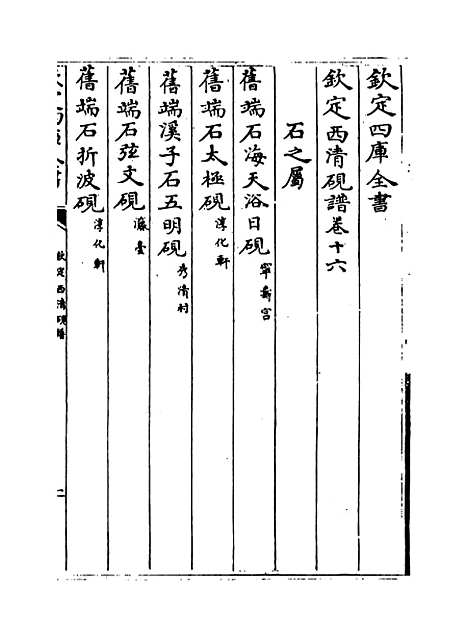 欽定四庫全書
欽定西清硯譜卷十六
石之屬
舊端石海天浴日硯 寧壽宮
舊端石太極硯 淳化軒
舊端溪子石五明硯 秀清村
舊端石弦文硯 瀛臺
舊端石折波硯 淳化軒
欽定西清硯譜